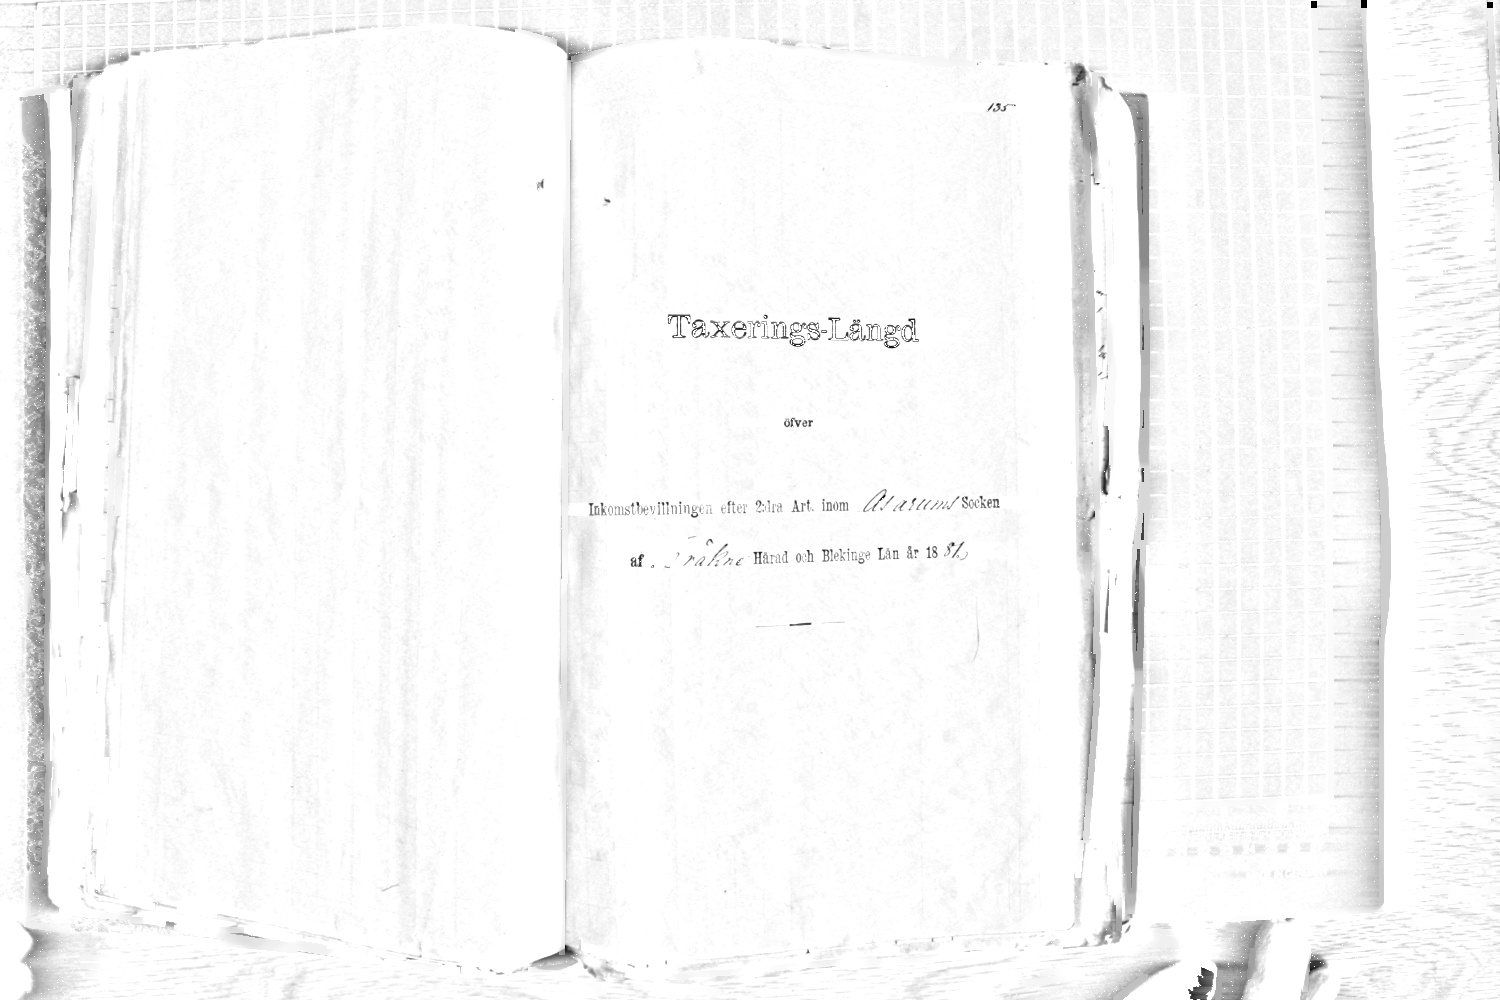 135
Taxerings-Längd
öfver
Inkomstbevillningen efter 2:dra Art. inom Asarums Socken
af Bräkne Härad och Blekinge Län år 1881.